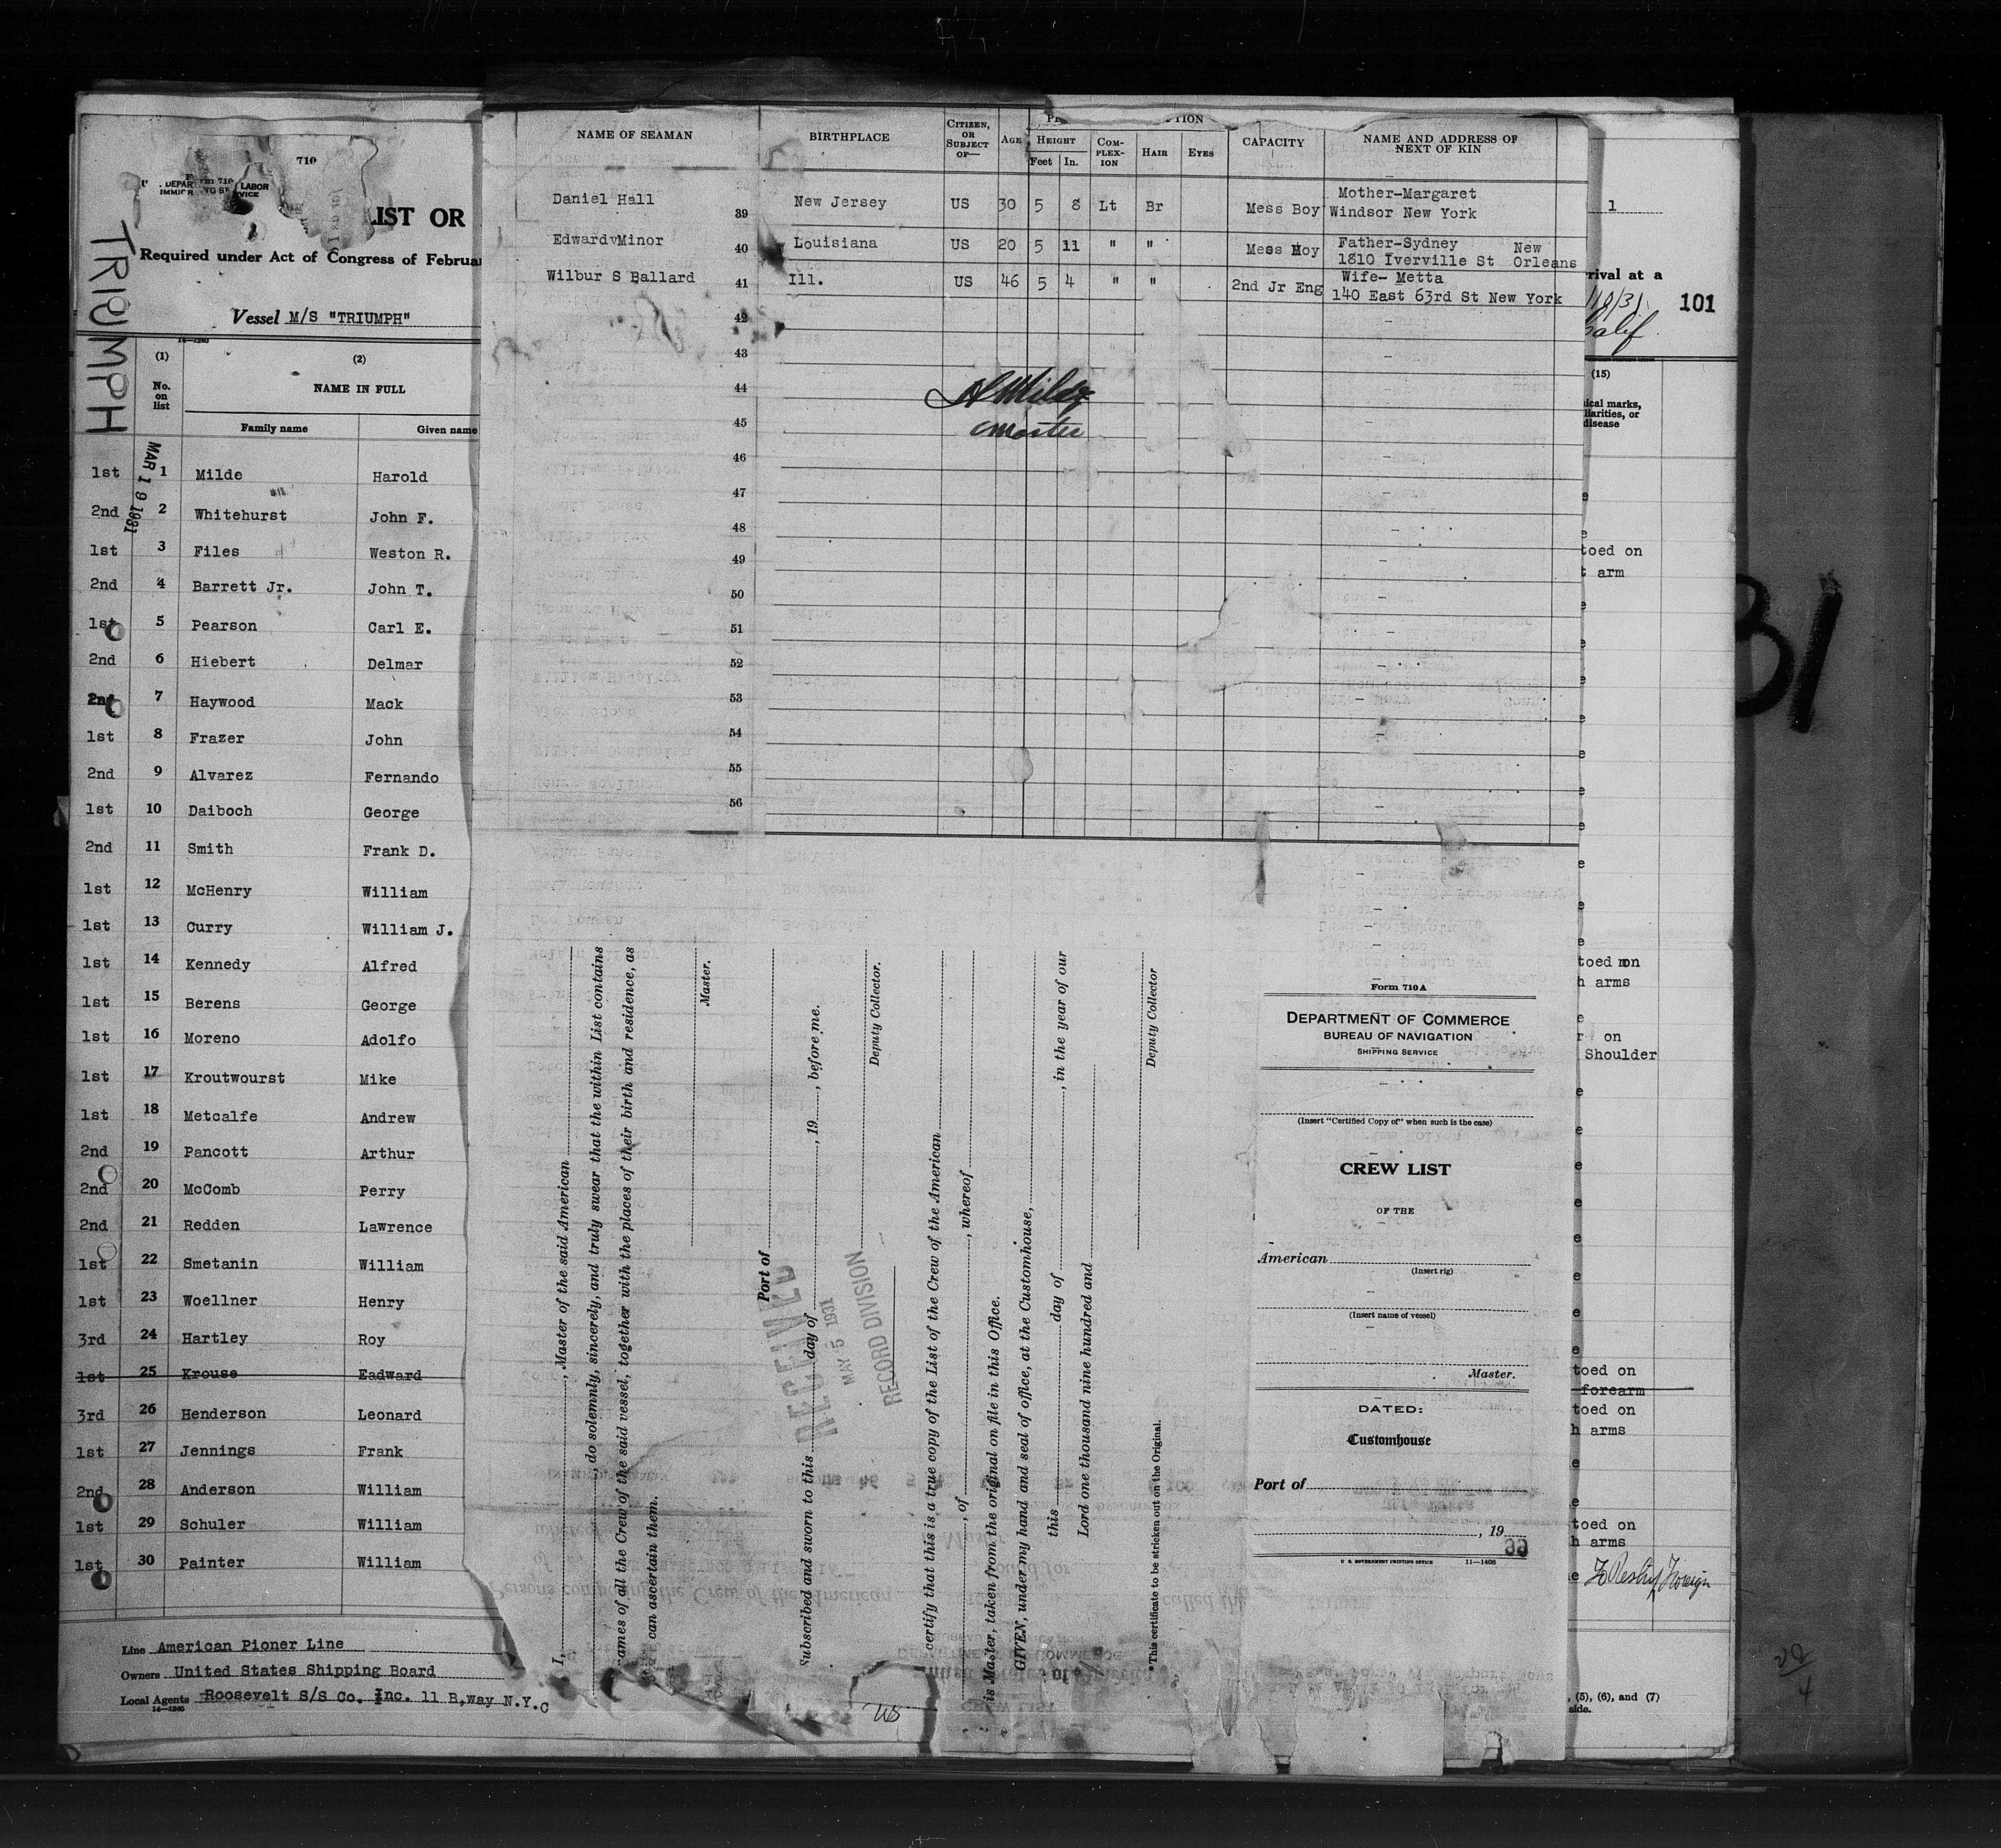 710
Form 710
LABOR
LIST OR
Required under Act of Congress of
Vessel M/S "TRIUMPH"
TRIUMPH
MAR 19 1931
(1) (2)
No. on list
NAME IN FULL
Family name Given name
1st 1 Milde Harold
2nd 2 Whitehurst John F.
1st 3 Files Weston R.
2nd 4 Barrett Jr. John T.
1st 5 Pearson Carl E.
2nd 6 Hiebert Delmar
2nd 7 Haywood Mack
1st 8 Frazer John
2nd 9 Alvarez Fernando
1st 10 Daiboch George
2nd 11 Smith Frank D.
1st 12 McHenry William
1st 13 Curry William J.
1st 14 Kennedy Alfred
1st 15 Berens George
1st 16 Moreno Adolfo
1st 17 Kroutwourst Mike
1st 18 Metcalfe Andrew
2nd 19 Pancott Arthur
2nd 20 McComb Perry
2nd 21 Redden Lawrence
1st 22 Smetanin William
1st 23 Woellner Henry
3rd 24 Hartley Roy
1st 25 Krouse Eadward
3rd 26 Henderson Leonard
1st 27 Jennings Frank
2nd 28 Anderson William
1st 29 Schuler William
1st 30 Painter William
Line American Pioner Line
Owners United States Shipping Board
Local Agents Roosevelt S/S Co. Inc. 11 B,way N.Y.C
14-1240
NAME OF SEAMAN
BIRTHPLACE
CITIZEN, OR SUBJECT OF—
AGE
HEIGHT
Feet In.
COMPLEXION
HAIR
EYES
CAPACITY
NAME AND ADDRESS OF NEXT OF KIN
Daniel Hall 39 New Jersey US 30 5 8 Lt Br Mess Boy Mother-Margaret
Windsor New York
Edward Minor 40 Louisiana US 20 5 11 " " Mess Boy Father-Sydney New
1810 Iverville St Orleans
Wilbur S Ballard 41 Ill. US 46 5 4 " " 2nd Jr Eng Wife- Metta
140 East 63rd St New York
42
43
44
45
46
47
48
49
50
51
52
53
54
55
56
H Milde
Master
I, , Master of the said American
, do solemnly, sincerely, and truly swear that the within List contains
names of all the Crew of the said vessel, together with the places of their birth and residence, as
can ascertain them.
Master.
Port of
Subscribed and sworn to this day of , 19 , before me.
Deputy Collector.
RECEIVED
MAY 5 1931
RECORD DIVISION
certify that this is a true copy of the List of the Crew of the American
, of , whereof
is Master, taken from the original on file in this Office.
GIVEN, under my hand and seal of office, at the Customhouse,
this day of , in the year of our
Lord one thousand nine hundred and
Deputy Collector
*This certificate to be stricken out on the Original.
Form 710A
DEPARTMENT OF COMMERCE
BUREAU OF NAVIGATION
SHIPPING SERVICE
(Insert "Certified Copy of" when such is the case)
CREW LIST
OF THE
American
(Insert rig)
(Insert name of vessel)
Master.
DATED:
Customhouse
Port of
, 19
U. S. GOVERNMENT PRINTING OFFICE 11-1408
1
rival at a
101
Calif
(15)
ical marks,
liarities, or
disease
toed on
t arm
toed on
h arms
r on
Shoulder
toed on
forearm
toed on
h arms
toed on
h arms
, (5), (6), and (7)
side.
31